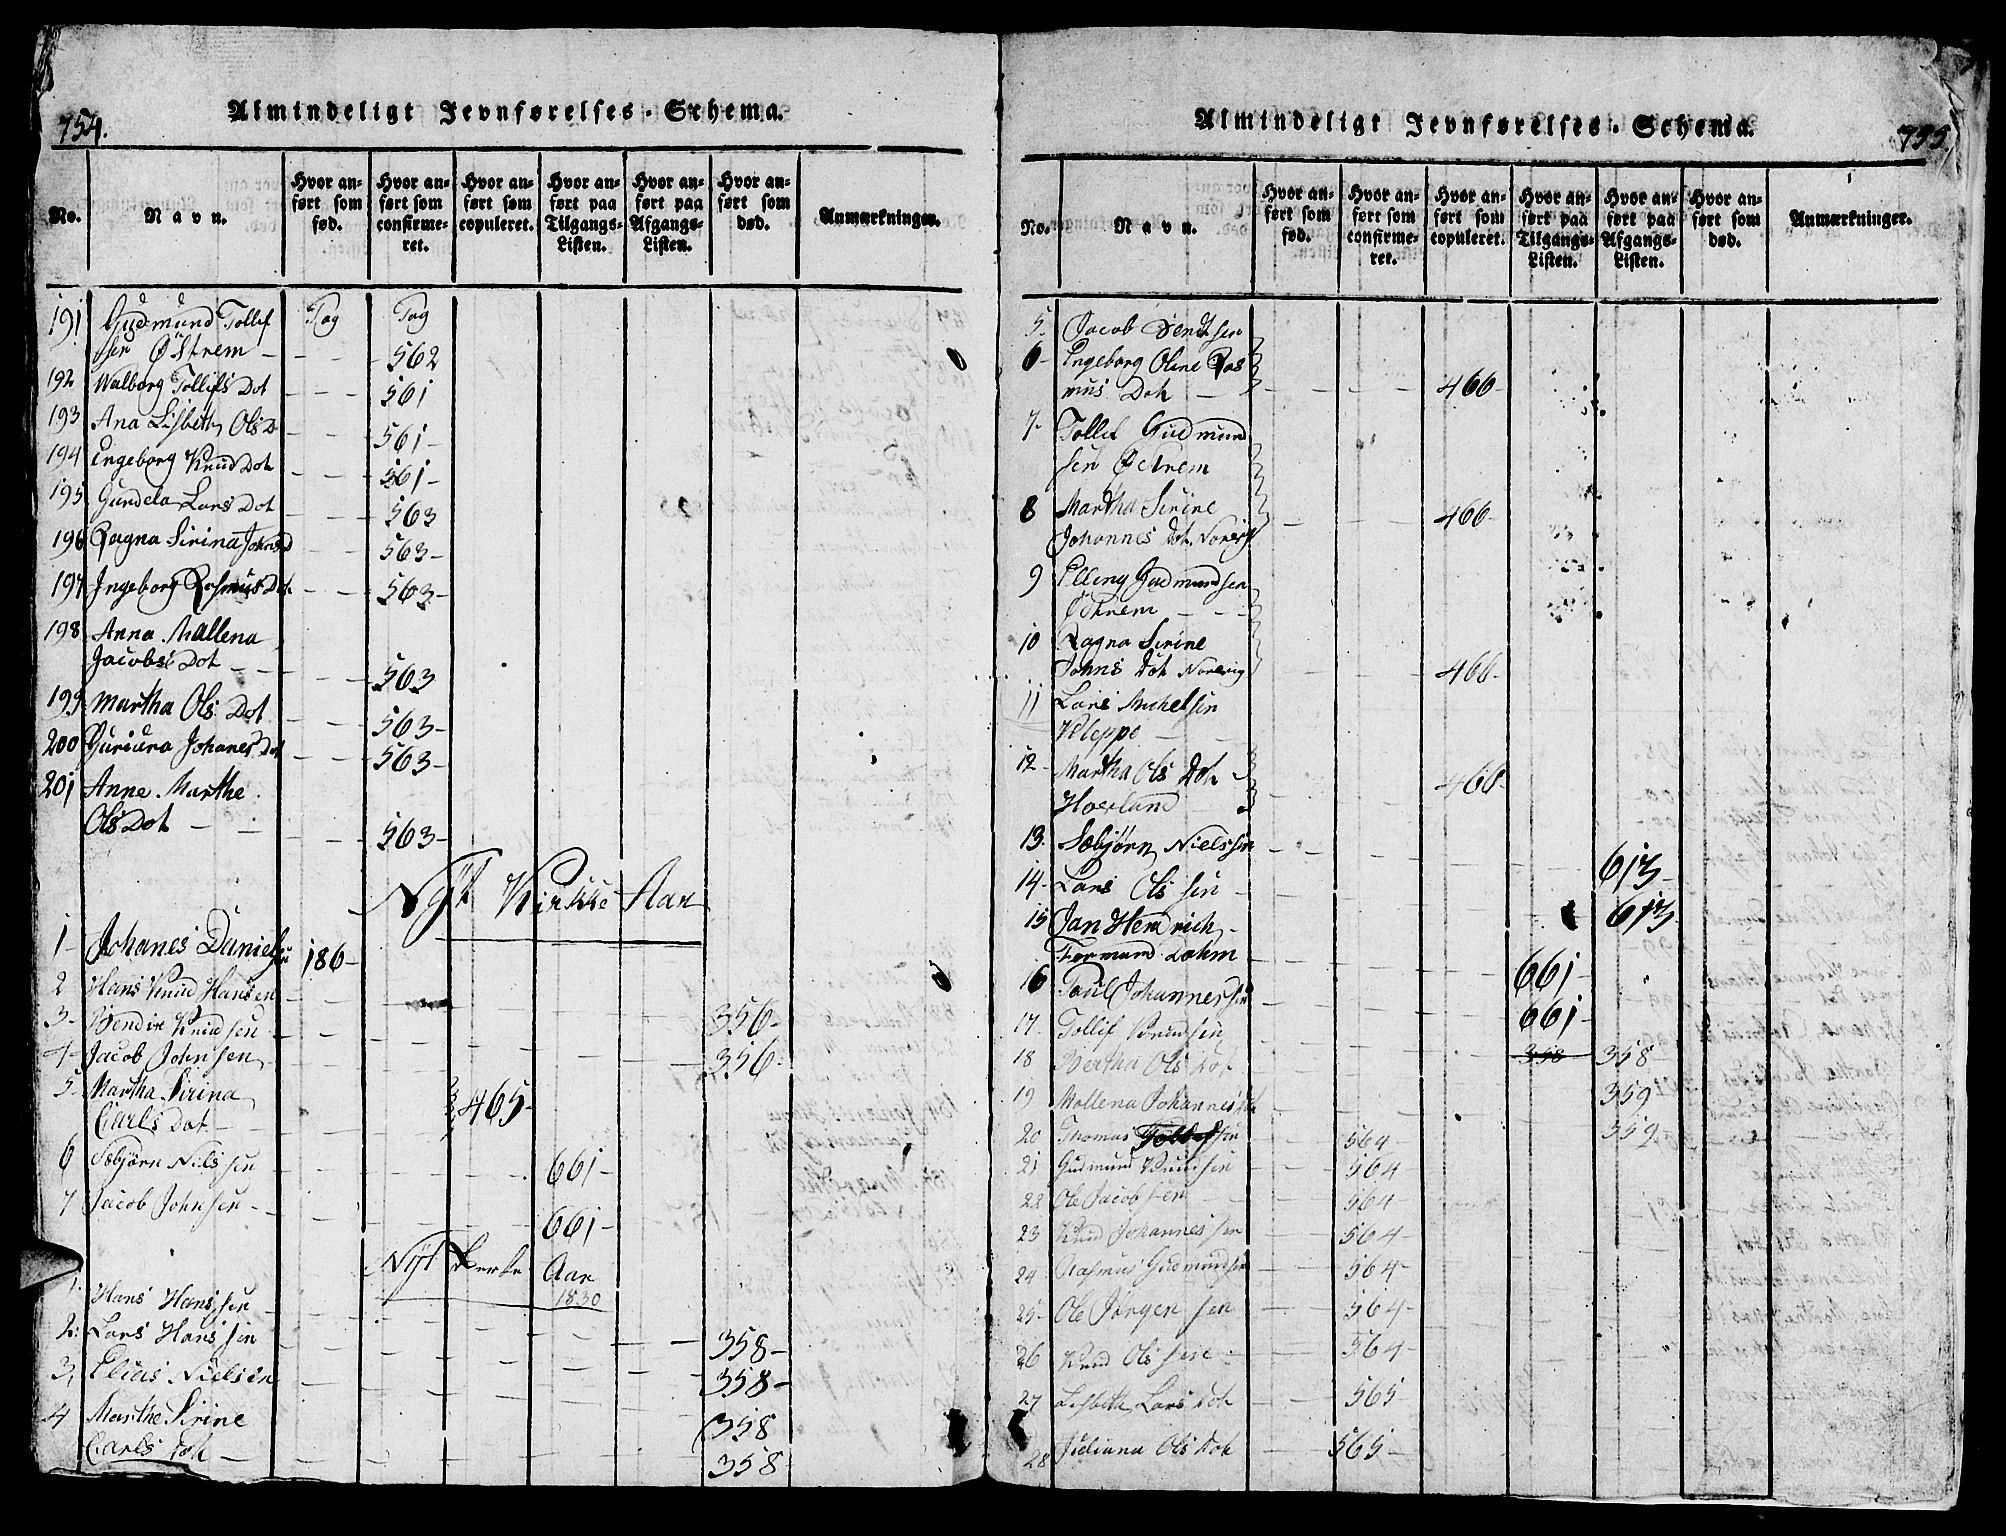 754.
Almindeligt Jevnførelses-Schema.
No.
Navn.
Hvor an-
ført som
fød.
Hvor an-
ført som
confirme-
ret.
Hvor an-
ført som
copuleret.
Hvor an-
ført paa
Tilgangs-
Listen.
Hvor an-
ført paa
Afgangs-
Listen.
Hvor an-
ført som
død.
Anmærkninger.
191 Gudmund Tollif Pag Pag
sen Østrem - 562
192 Walborg Tollifs Dot 561
193 Ana Lisbeth Ols D 561-
194 Engeborg Knud Dot 561-
195 Gundela Lars Dot 563
196 Ragna Sirina Johns D 563-
197 Ingeborg Rasmus Dot 563-
198 Anna Mallena
Jacobs Dot 563
199 Martha Ols Dot 563-
200 Guriana Johanes Dot 563-
201 Anne Marthe
Ols Dot 563-
Nyt Kirkke Aar
1- Johanes Danielsen 186-
2 Hans Knud Hansen 356-
3- Bendix Knudsen 356-
4- Jacob Johnsen
5- Martha Sirina
Carls Dot 465-
6 Sæbjørn Nilssen 661-
7 Jacob Johnsen 661-
Nyt Kirke Aar
1830
1. Hans Hanssen
2: Lars Hanssen 358-
3, Elias Nielsen 358-
4 Marthe Sirine 358
Carls Dot - 358-
755.
Almindeligt Jevnførelses-Schema.
No.
Navn.
Hvor an-
ført som
fød.
Hvor an-
ført som
confirme-
ret.
Hvor an-
ført som
copuleret.
Hvor an-
ført paa
Tilgangs-
Listen.
Hvor an-
ført paa
Afgangs-
Listen.
Hvor an-
ført som
død.
Anmærkninger.
5- Jacob Sendtsen
6- Engeborg Oline Ras
mus Dot - 466-
7- Tollif Gudmund
sen Østrem
8 Martha Sirine 466-
Johannes Dot
9 Elling Gudmundsen
Østrem
10 Ragna Sirine
Johns Dot Norevig 466-
11 Lars Michelsen
Kleppe
12- Martha Ols Dot 466-
13. Sæbjørn Nielssen 613-
14- Lars Olssen 613
15 Jan Hendrich
661-
16 Poul Johannessen 661-
17- Tollif Knudsen 358 358
18 Bertha Ols Dot 359
19 Mollena Johannes Dot 359
20 Thomas Tollefsen 564-
21 Gudmund Knudsen 564
22 Ole Jacobsen 564-
23 Knud Johannessen 564-
24 Rasmus Gudmundsen 564-
25- Ole Jørgensen 564-
26 Knud Olssen 564-
27 Lisbeth Lars Dot 565-
28 Juliana Ols Dot 565-